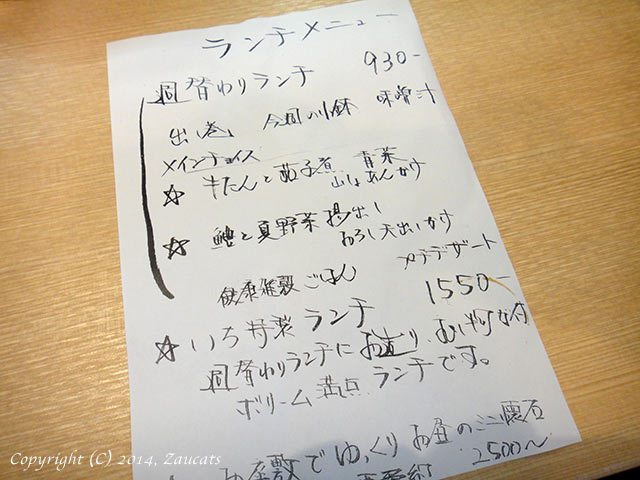 ランチメニュー
週替わりランチ 930-
出し巻 今週の小鉢 味噌汁
メインチョイス
☆ 牛たんと茄子煮 青菜
山しょあんかけ
☆ 鱧と夏野菜揚出し
おろし天出しかけ
健康雑穀ごはん プチデザート
☆ いち特製ランチ 1550-
週替わりランチにお造り、むし物な付
ボリーム満点ランチです。
お座敷でゆっくりお昼のミニ懐石
2500~
Copyright (C) 2014, Zaucats